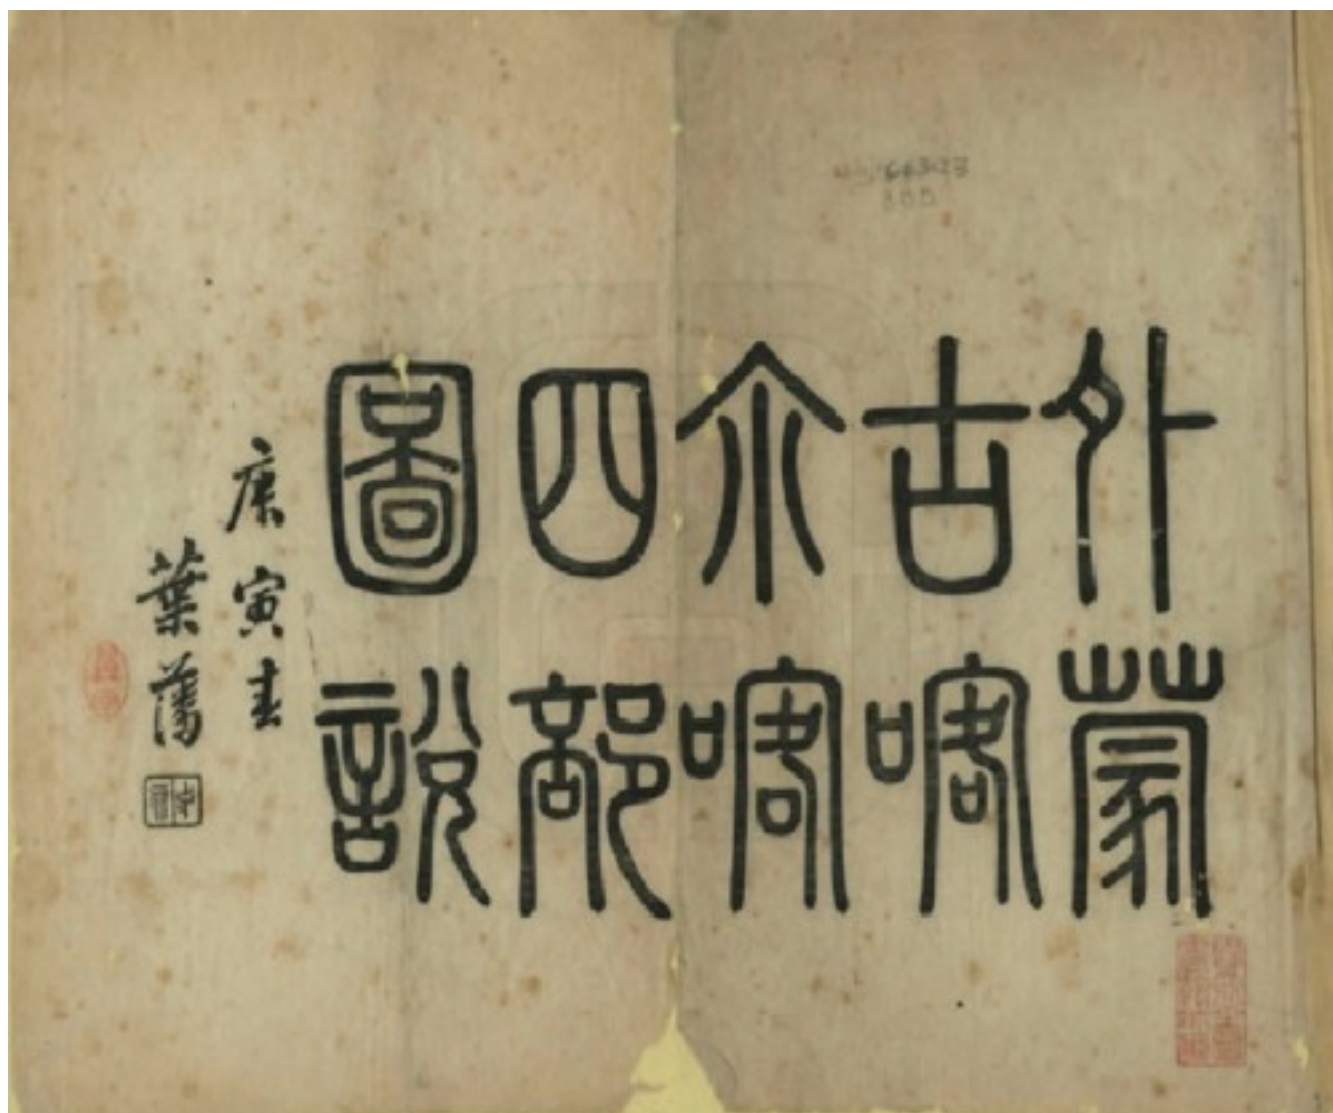 外蒙
古喀
尒喀
四部
圖說
庚寅春
葉蕃